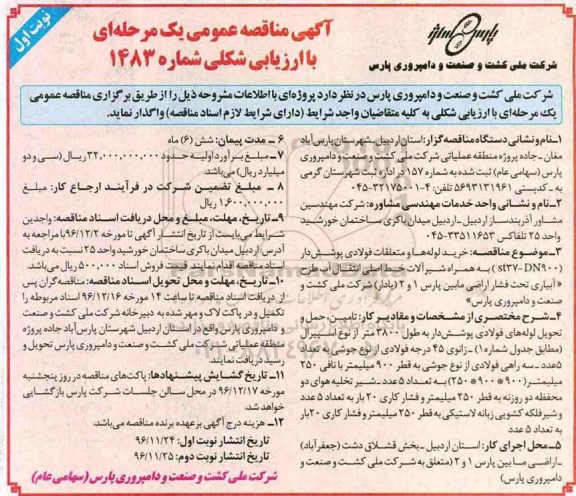 نوبت اول
آگهی مناقصه عمومی یک مرحله‌ای
با ارزیابی شکلی شماره ۱۴۸۳
شرکت ملی کشت و صنعت و دامپروری پارس
شرکت ملی کشت و صنعت و دامپروری پارس در نظر دارد پروژه‌ای با اطلاعات مشروحه ذیل را از طریق برگزاری مناقصه عمومی
یک مرحله‌ای با ارزیابی شکلی به کلیه متقاضیان واجد شرایط (دارای شرایط لازم اسناد مناقصه) واگذار نماید.
۱ـ نام و نشانی دستگاه مناقصه گزار: استان اردبیل ـ شهرستان پارس آباد
مغان ـ جاده پروژه منطقه عملیاتی شرکت ملی کشت و صنعت و دامپروری
پارس (سهامی عام) ثبت شده به شماره ۱۵۷ در اداره ثبت شهرستان گرمی
به ـ کدپستی ۵۶۹۳۱۳۱۹۶۱ تلفن: ۴-۳۲۱۷۵۰۰۱-۰۴۵
۲ـ نام و نشانی واحد خدمات مهندسی مشاوره: شرکت مهندسین
مشاور آذربندساز اردبیل ـ اردبیل میدان باکری ساختمان خورشید
واحد ۲۵ تلفاکس ۳۳۵۱۱۶۵۳-۰۴۵
۳ـ موضوع مناقصه: خرید لوله‌ها و متعلقات فولادی پوشش‌دار
(st37-DN900) به همراه شیرآلات خط اصلی انتقال آب طرح
« آبیاری تحت فشار اراضی مابین پارس ۱ و ۲ (یادلر) شرکت ملی کشت و
صنعت و دامپروری پارس»
۴ـ شرح مختصری از مشخصات و مقادیر کار: تامین، حمل و
تحویل لوله‌های فولادی پوشش‌دار به طول ۳۸۰۰ متر از نوع اسپیرال
(مطابق جدول شماره ۱) ـ زانوی ۴۵ درجه فولادی از نوع جوشی به تعداد
۵ عدد ـ سه راهی فولادی از نوع جوشی به قطر ۹۰۰ میلیمتر با نافی ۲۵۰
میلیمتر (۹۰۰*۹۰۰*۲۵۰) به تعداد ۵ عدد ـ شیر تخلیه هوای دو
محفظه دو روزنه به قطر ۲۵۰ میلیمتر و فشار کاری ۲۰ بار به تعداد ۵ عدد
و شیر فلکه کشویی زبانه لاستیکی به قطر ۲۵۰ میلیمتر و فشار کاری ۲۰ بار
به تعداد ۵ عدد
۵ـ محل اجرای کار: استان اردبیل ـ بخش قشلاق دشت (جعفرآباد)
ـ اراضی مابین پارس ۱ و ۲ (متعلق به شرکت ملی کشت و صنعت و
دامپروری پارس)
۶ ـ مدت پیمان: شش (۶) ماه
۷ـ مبلغ برآورد اولیه حدود ۳۲,۰۰۰,۰۰۰,۰۰۰ ریال (سی و دو
میلیارد ریال) می‌باشد.
۸ ـ مبلغ تضمین شرکت در فرآیند ارجاع کار: مبلغ
۱,۶۰۰,۰۰۰,۰۰۰ ریال
۹ـ تاریخ، مهلت، مبلغ و محل دریافت اسناد مناقصه: واجدین
شرایط می‌بایست از تاریخ انتشار آگهی تا مورخه ۹۶/۱۲/۲ با مراجعه به
آدرس: اردبیل میدان باکری ساختمان خورشید واحد ۲۵ نسبت به دریافت
اسناد مناقصه اقدام نمایند. قیمت فروش اسناد ۵۰۰,۰۰۰ ریال می‌باشد.
۱۰ـ تاریخ، مهلت و محل تحویل اسناد مناقصه: مناقصه گران پس
از دریافت اسناد مناقصه تا ساعت ۱۴ مورخه ۹۶/۱۲/۱۶ اسناد مربوطه را
تکمیل و در پاکت لاک و مهر شده به دبیرخانه شرکت ملی کشت و صنعت
و دامپروری پارس واقع در استان اردبیل شهرستان پارس آباد جاده پروژه
منطقه عملیاتی شرکت ملی کشت و صنعت و دامپروری پارس تحویل و
رسید دریافت نمایند.
۱۱ـ تاریخ گشایش پیشنهادها: پاکت‌های مناقصه در روز پنجشنبه
مورخه ۹۶/۱۲/۱۷ در محل سالن جلسات شرکت پارس بازگشایی
خواهد شد.
۱۲ـ هزینه درج آگهی برعهده برنده مناقصه می‌باشد.
تاریخ انتشار نوبت اول: ۹۶/۱۱/۲۴
تاریخ انتشار نوبت دوم: ۹۶/۱۱/۲۵
شرکت ملی کشت و صنعت و دامپروری پارس (سهامی عام)